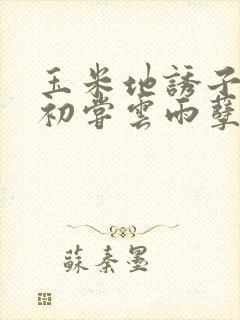 玉米地誘子
初嘗雲雨孽
蘇秦墨